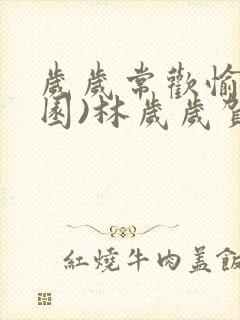 歲歲常歡愉
園)林歲歲
紅燒牛肉盖飯